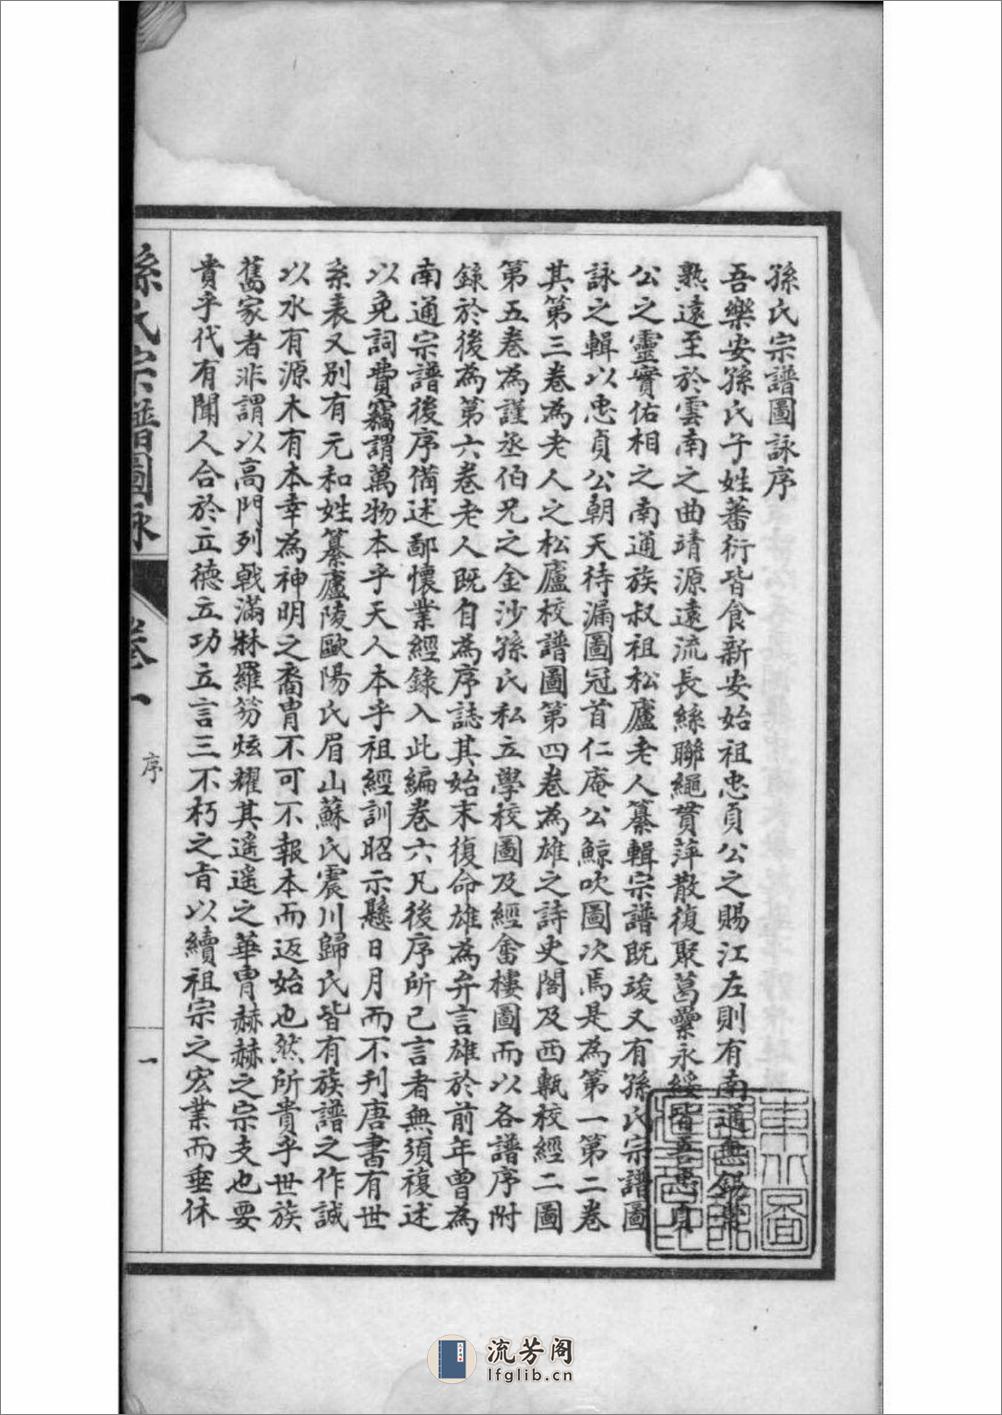 孫氏宗譜圖詠序
吾樂安孫氏子姓蕃衍皆食新安始祖忠貞公之賜江左則有南通無錫常
熟遠至於雲南之曲靖源遠流長絲聯繩貫萍散復聚葛虆永綏皆吾忠貞
公之靈實佑相之南通族叔祖松廬老人纂輯宗譜既竣又有孫氏宗譜圖
詠之輯以忠貞公朝天待漏圖冠首仁庵公鯨吹圖次焉是為第一第二卷
其第三卷為老人之松廬校譜圖第四卷為雄之詩史閣及西甎校經二圖
第五卷為謹丞伯兄之金沙孫氏私立學校圖及經畬樓圖而以各譜序附
錄於後為第六卷老人既自為序誌其始末復命雄為弁言雄於前年曾為
南通宗譜後序備述鄙懷業經錄入此編卷六凡後序所已言者無須複述
以免詞費竊謂萬物本乎天人本乎祖經訓昭示懸日月而不刊唐書有世
系表又別有元和姓纂廬陵歐陽氏眉山蘇氏震川歸氏皆有族譜之作誠
以水有源木有本幸為神明之裔冑不可不報本而返始也然所貴乎世族
舊家者非謂以高門列戟滿牀羅笏炫耀其遥遥之華冑赫赫之宗支也要
貴乎代有聞人合於立德立功立言三不朽之旨以續祖宗之宏業而垂休
孫氏宗譜圖詠 卷一 序 一
流芳阁
lfglib.cn